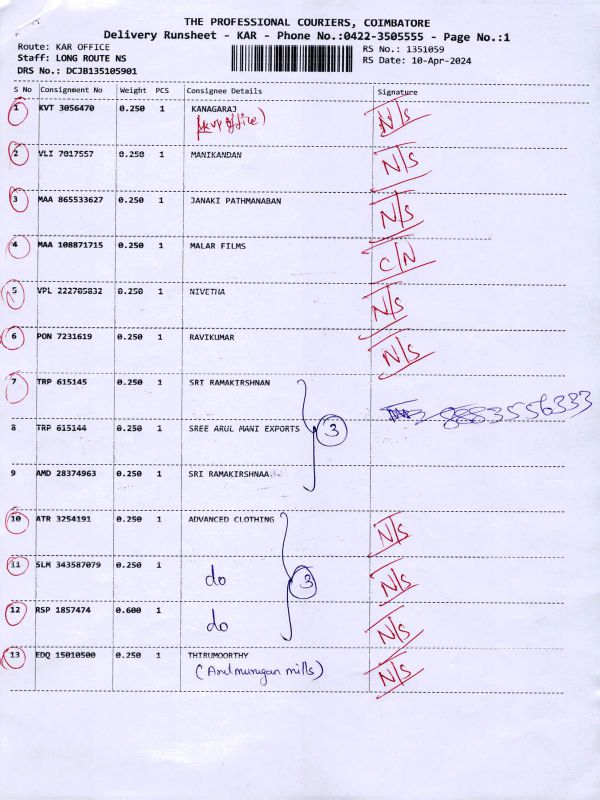 THE PROFESSIONAL COURIERS, COIMBATORE
Delivery Runsheet - KAR - Phone No.:0422-3505555 - Page No.:1
Route: KAR OFFICE RS No.: 1351059
Staff: LONG ROUTE NS RS Date: 10-Apr-2024
DRS No.: DCJB135105901
S No Consignment No Weight PCS Consignee Details Signature
1 KVT 3056470 0.250 1 KANAGARAJ N/S
(KVT office)
2 VLI 7017557 0.250 1 MANIKANDAN N/S
3 MAA 865533627 0.250 1 JANAKI PATHMANABAN N/S
4 MAA 108871715 0.250 1 MALAR FILMS C/N
5 VPL 222705832 0.250 1 NIVETHA N/S
6 PON 7231619 0.250 1 RAVIKUMAR N/S
7 TRP 615145 0.250 1 SRI RAMAKIRSHNAN
8 TRP 615144 0.250 1 SREE ARUL MANI EXPORTS 3
9 AMD 28374963 0.250 1 SRI RAMAKIRSHNAA
10 ATR 3254191 0.250 1 ADVANCED CLOTHING N/S
11 SLM 343587079 0.250 1 do 3 N/S
12 RSP 1857474 0.600 1 do N/S
13 EDQ 15010500 0.250 1 THIRUMOORTHY N/S
(Arulmurugan mills)